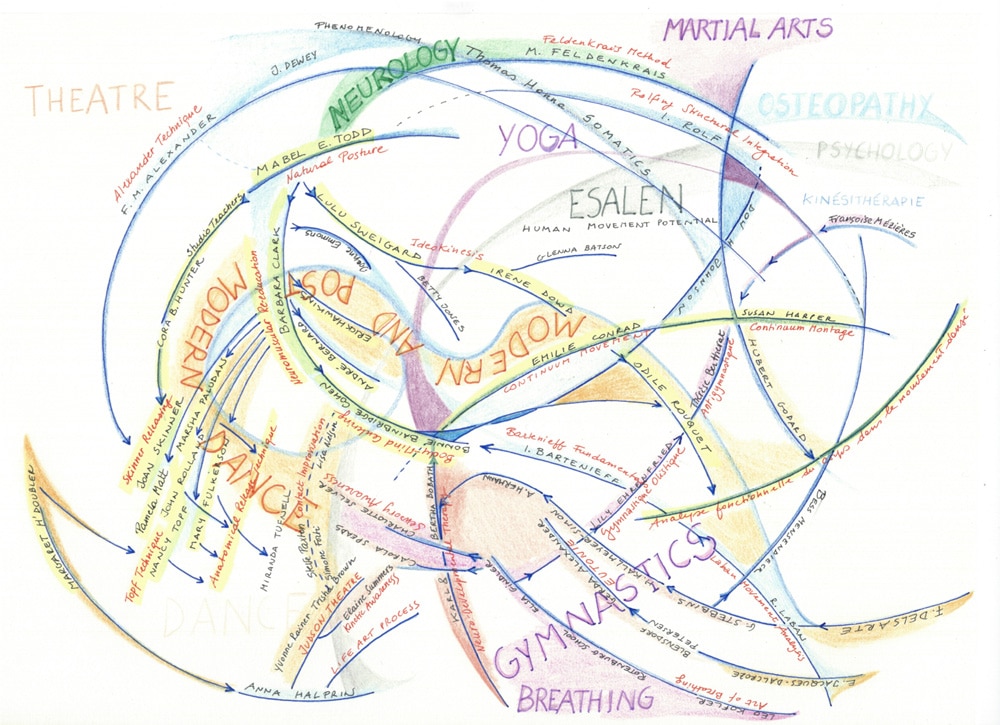 MARTIAL ARTS
PHENOMENOLOGY
J. DEWEY
NEUROLOGY
Thomas Hanna SOMATICS
Feldenkrais Method
M. FELDENKRAIS
THEATRE
Alexander Technique
F. M. ALEXANDER
Rolfing Structural Integration
I. ROLF
OSTEOPATHY
PSYCHOLOGY
YOGA
MABEL E. TODD
Natural Posture
ESALEN
HUMAN MOVEMENT POTENTIAL
KINÉSITHÉRAPIE
Françoise MÉZIÈRES
DON H. JOHNSON
Studio Teachers
CORA B. HUNTER
LULU SWEIGARD
Ideokinesis
IRENE DOWD
GLENNA BATSON
BETTY JONES
BARBARA CLARK
Neuromuscular Reeducation
ERICK HAWKINS
ANDRE BERNARD
MODERN
POST
AND
MODERN
DANCE
EMILIE CONRAD
CONTINUUM MOVEMENT
SUSAN HARPER
Continuum Montage
HUBERT GODARD
ODILE ROUQUET
Antigymnastique
Analyse fonctionnelle du corps dans le mouvement dansé
BONNIE BAINBRIDGE COHEN
Body Mind Centering
Bartenieff Fundamentals
I. BARTENIEFF
LILY EHRENFRIED
Gymnastique Holistique
BESS MENSENDIECK
Skinner Releasing
JOAN SKINNER
MARSHA PALUDAN
Pamela Matt
JOHN ROLLAND
Topf Technique
NANCY TOPF
MARY FULKERSON
Anatomical Release Technique
MIRANDA TUFNELL
Contact Improvisation
Lisa Nelson
Steve Paxton
Simone Forti
Yvonne Rainer
Trisha Brown
JUDSON THEATRE
Elaine Summers
Kinetic Awareness
LIFE ART PROCESS
ANNA HALPRIN
MARGARET H'DOUBLER
DANCE
CHARLOTTE SELVER
Sensory Awareness
CAROLA SPEADS
BERTHA BOBATH
KARL &
Neuro-Developmental Therapy
ELSA GINDLER
GYMNASTICS
G. STEBBINS
Laban Movement Analysis
R. LABAN
F. DELSARTE
E. JACQUES-DALCROZE
ROTENBURG SCHOOL
Art of Breathing
LEO KOFLER
BREATHING